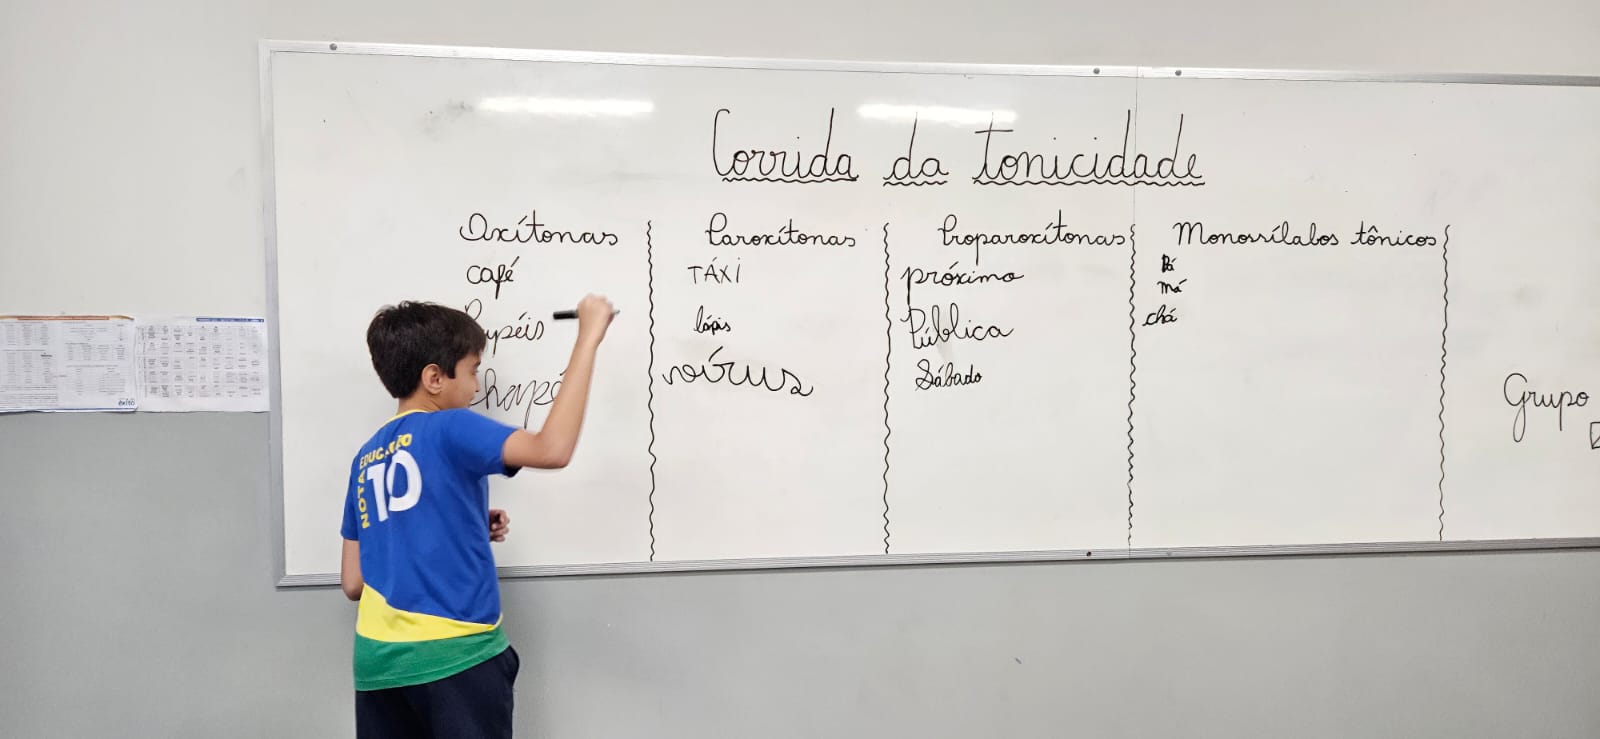 Corrida da tonicidade
Oxítonas
café
Papéis
Chapé
Paroxítonas
TÁXI
lápis
vírus
Proparoxítonas
próximo
Pública
Sábado
Monossílabos tônicos
Pá
má
chá
Grupo
NOTA
EDUCAÇÃO
10
êxito